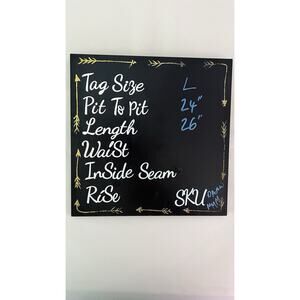 Tag Size L
Pit To Pit 24"
Length 26"
WaiSt
InSide Seam
RiSe SKU